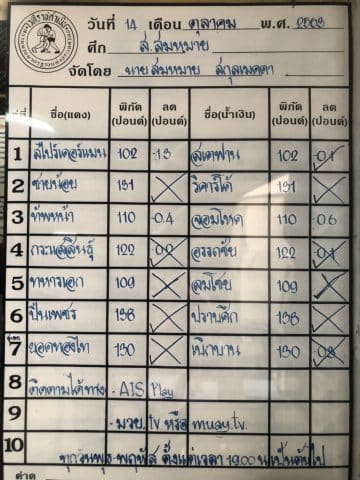 วันที่ 14 เดือน ตุลาคม พ.ศ. 2563
ศึก ส.สมหมาย
จัดโดย นายสมหมาย สกุลเมตตา
คู่ที่ ชื่อ(แดง) พิกัด (ปอนด์) ลด (ปอนด์) ชื่อ(น้ำเงิน) พิกัด (ปอนด์) ลด (ปอนด์)
1 สไปร์เดอร์แมน 102 1.3 สเตฟาน 102 0.1
2 ชายน้อย 131 ริคาร์โด้ 131
3 ทัพหน้า 110 0.4 จอมโหด 110 0.6
4 กระแสสินธุ์ 122 0.0 อรรถชัย 122 0.1
5 ทหารเอก 109 สมโชย 109
6 ปืนเพชร 138 ปราบศึก 138
7 ยอดทองไท 130 เบิกบาน 130 0.8
8 ติดตามได้ทาง - AIS Play
9 - มวย.tv หรือ muay.tv.
10 ทุกวันพุธ-พฤหัส ตั้งแต่เวลา 19.00 น เป็นต้นไป